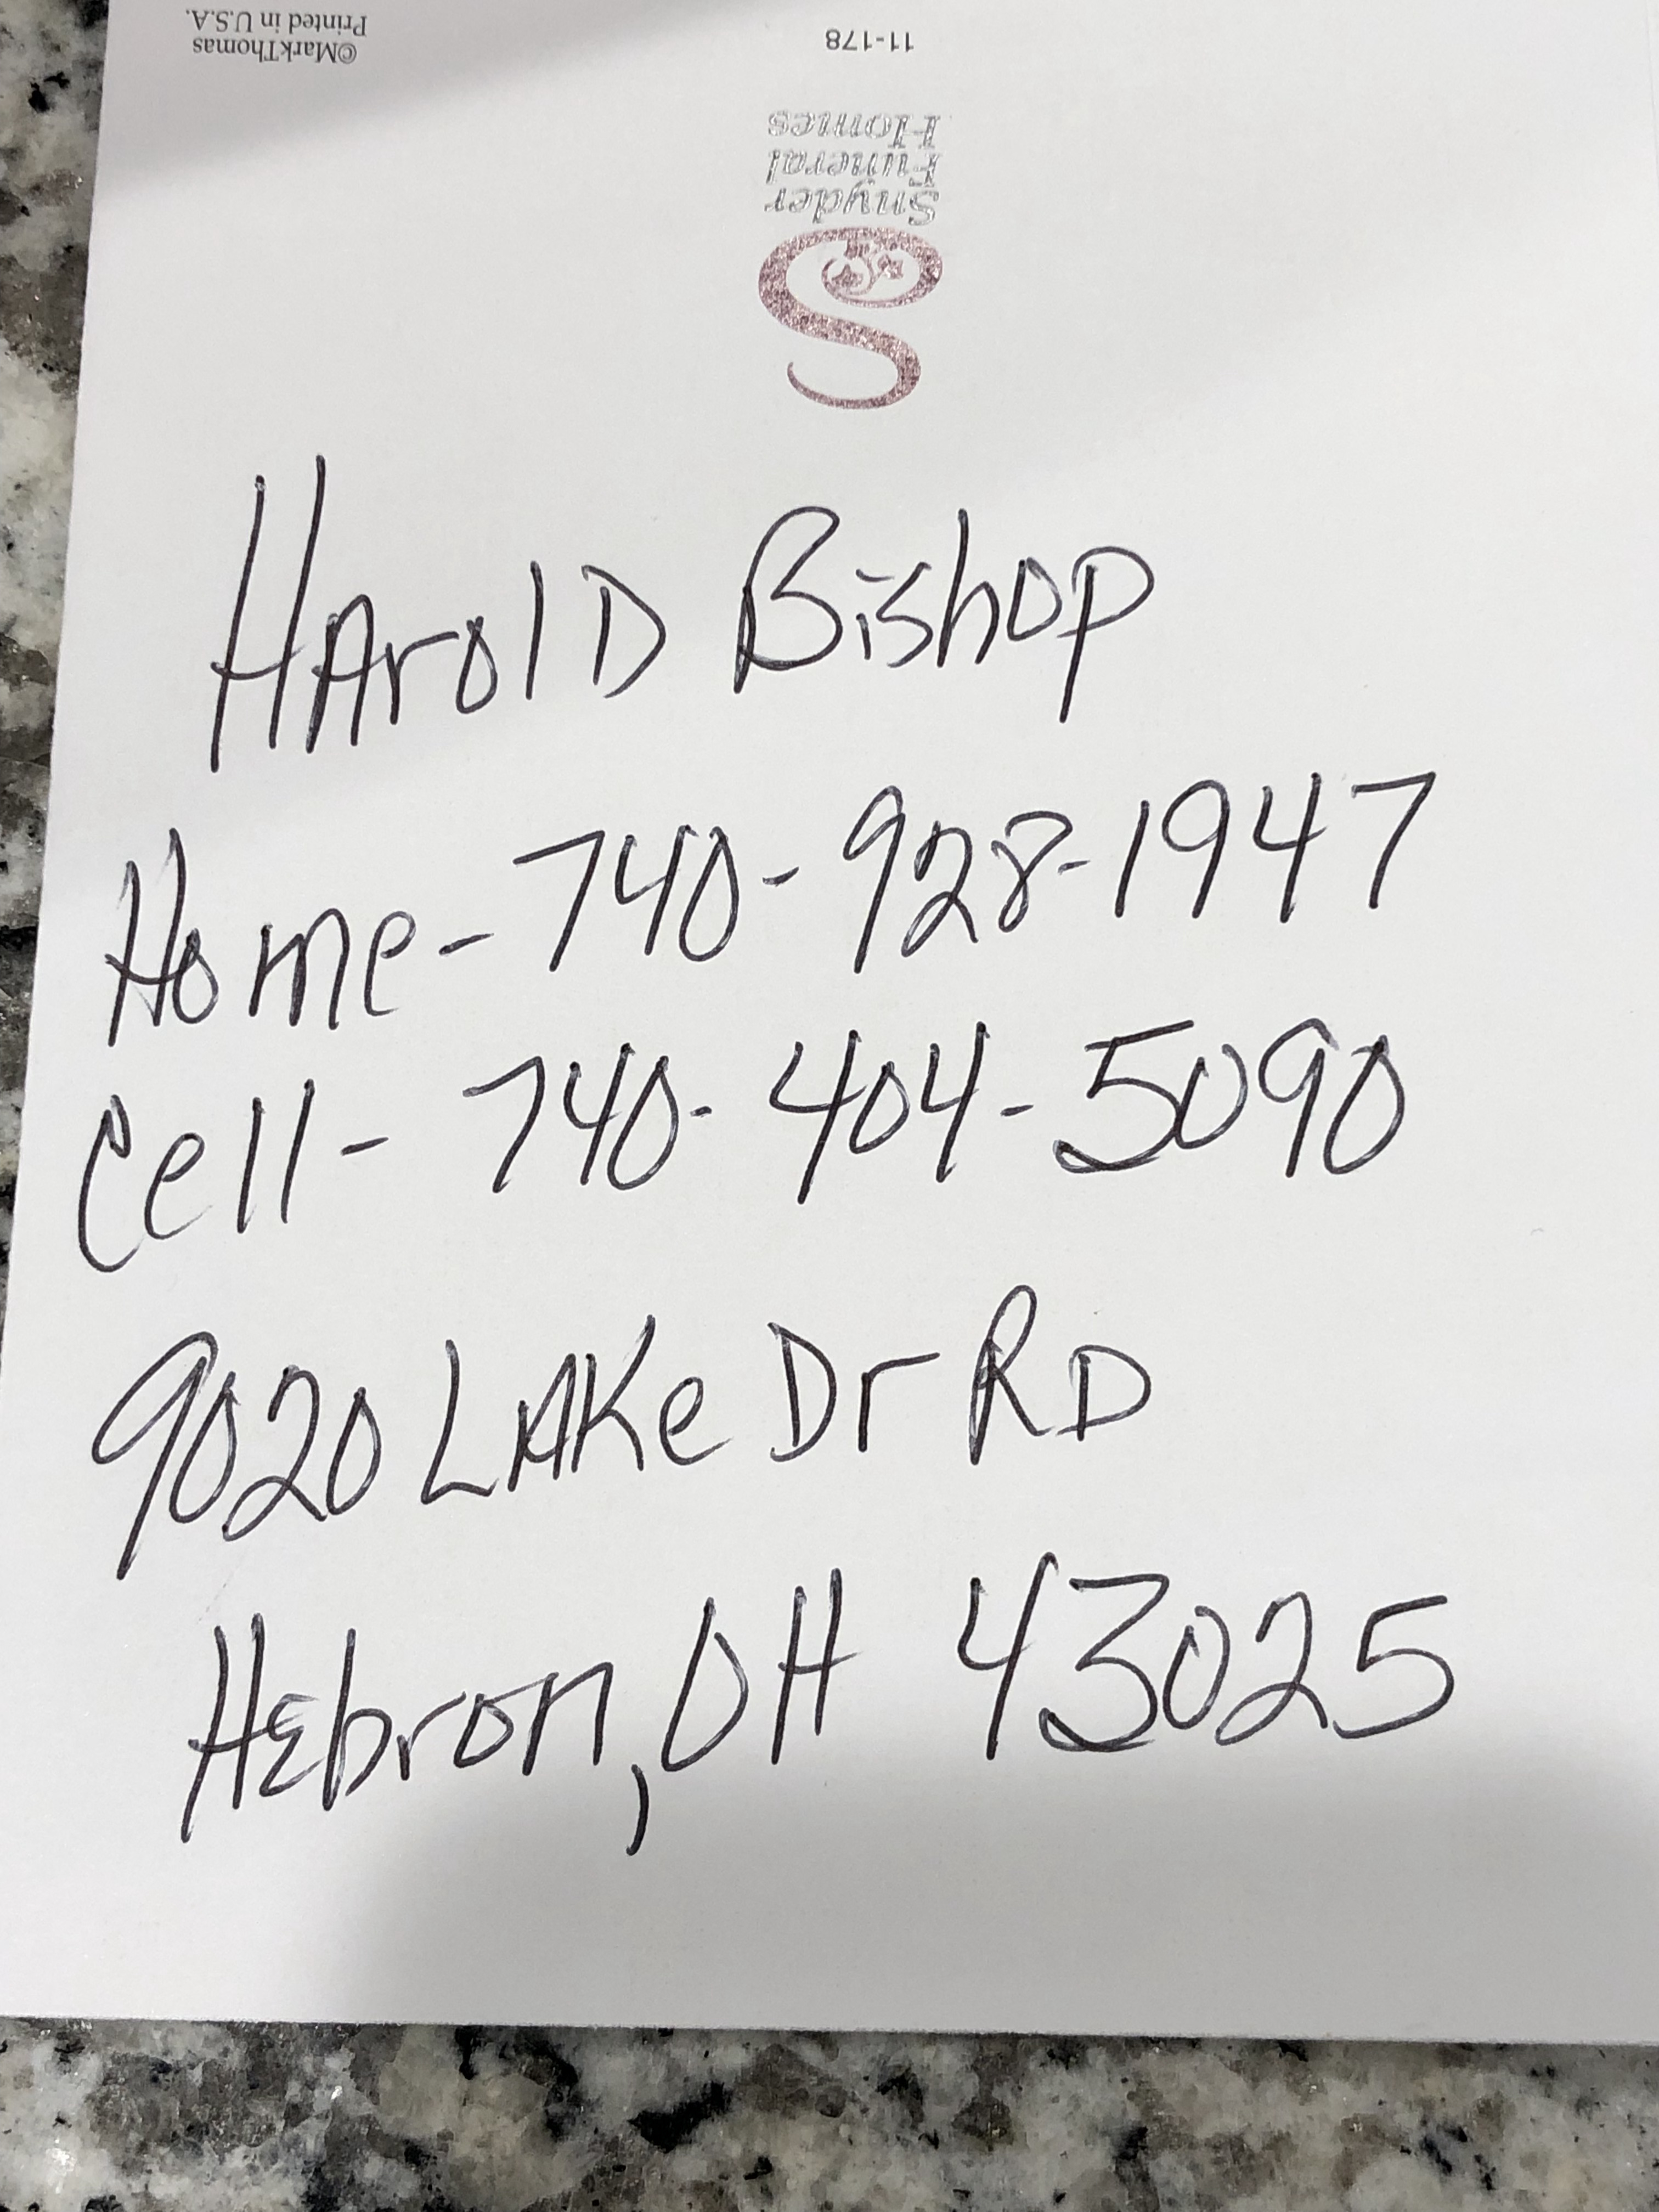 ©MarkThomas
Printed in U.S.A.
11-178
Snyder
Funeral
Homes
HArolD Bishop
Home-740-928-1947
Cell-740-404-5090
9020 LAKe Dr RD
Hebron, OH 43025